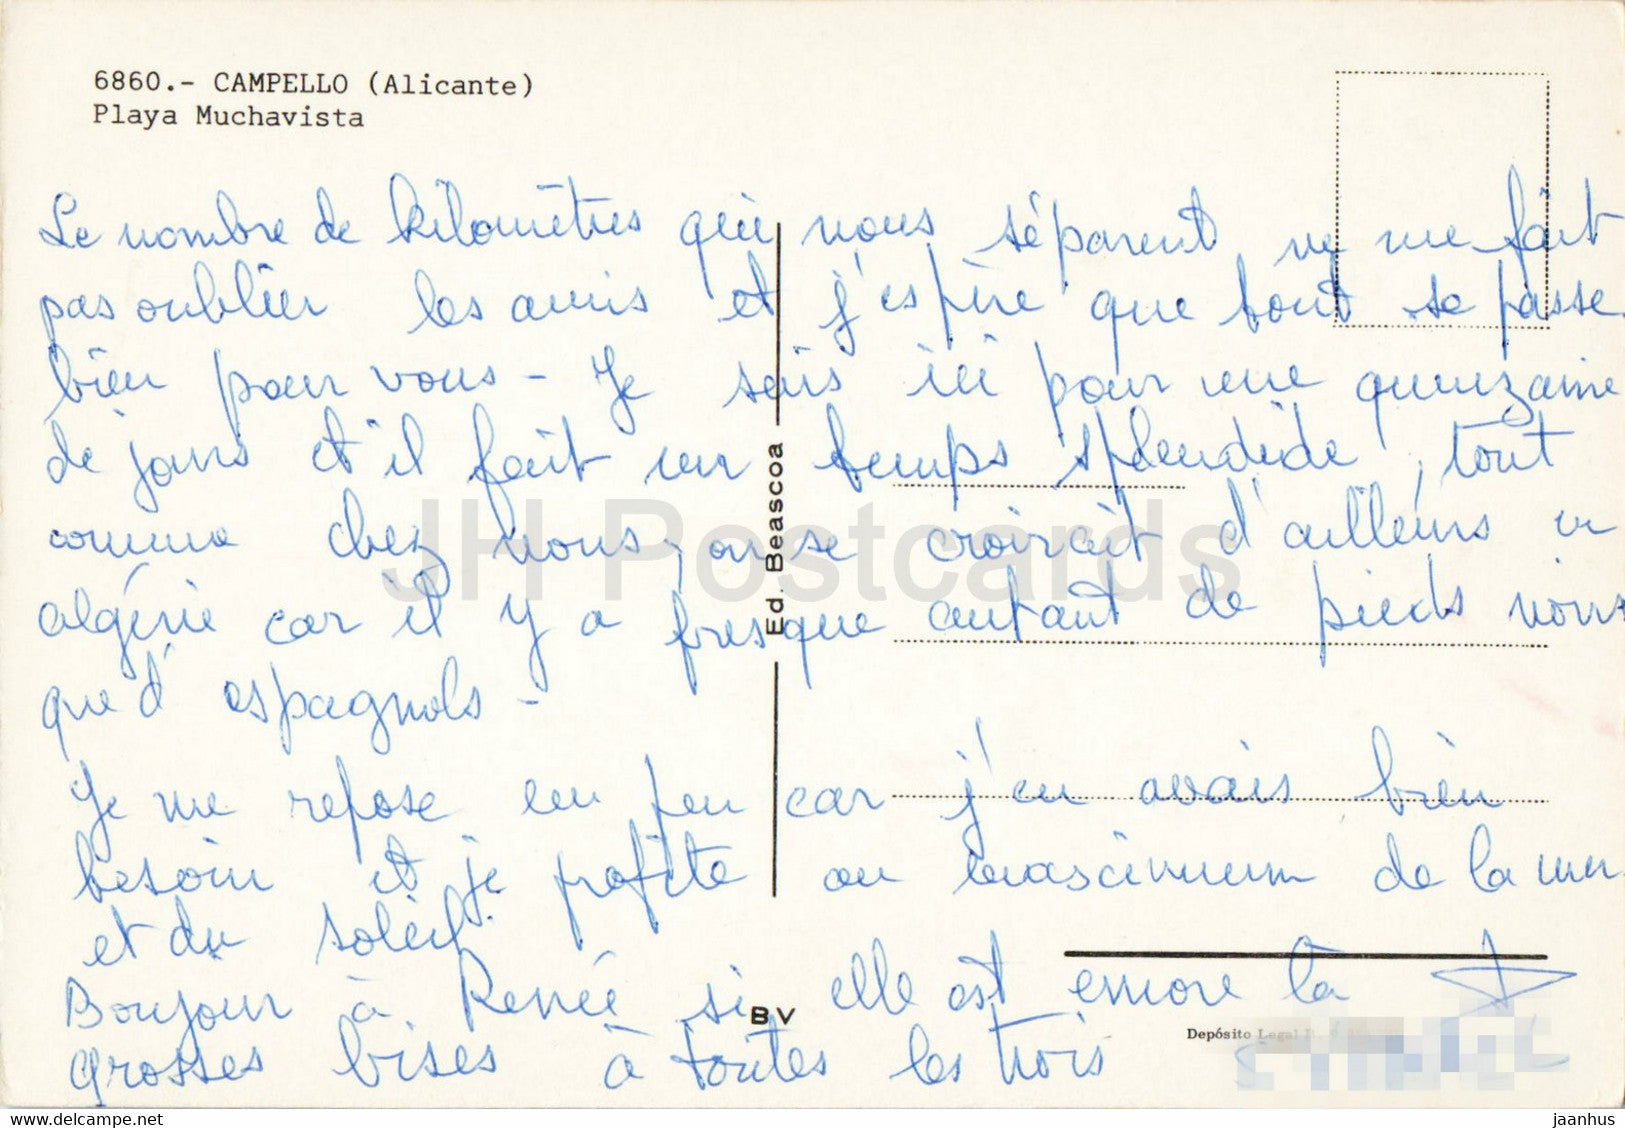 6860.- CAMPELLO (Alicante)
Playa Muchavista
Le nombre de kilomètres qui nous séparent, ne me fait
pas oublier les amis et j'espère que tout se passe
bien pour vous - Je suis ici pour une quinzaine
de jours et il fait un temps splendide, tout
comme chez nous, on se croirait d'ailleurs en
algérie car il y a presque autant de pieds noirs
que d'espagnols -
Je me repose un peu car j'en avais bien
besoin et je profite au maximum de la mer
et du soleil.
Bonjour à Renée si elle est encore là
grosses bises à toutes les trois
Ed. Beascoa
BV
Depósito Legal
JH Postcards
delcampe.net
jaanhus